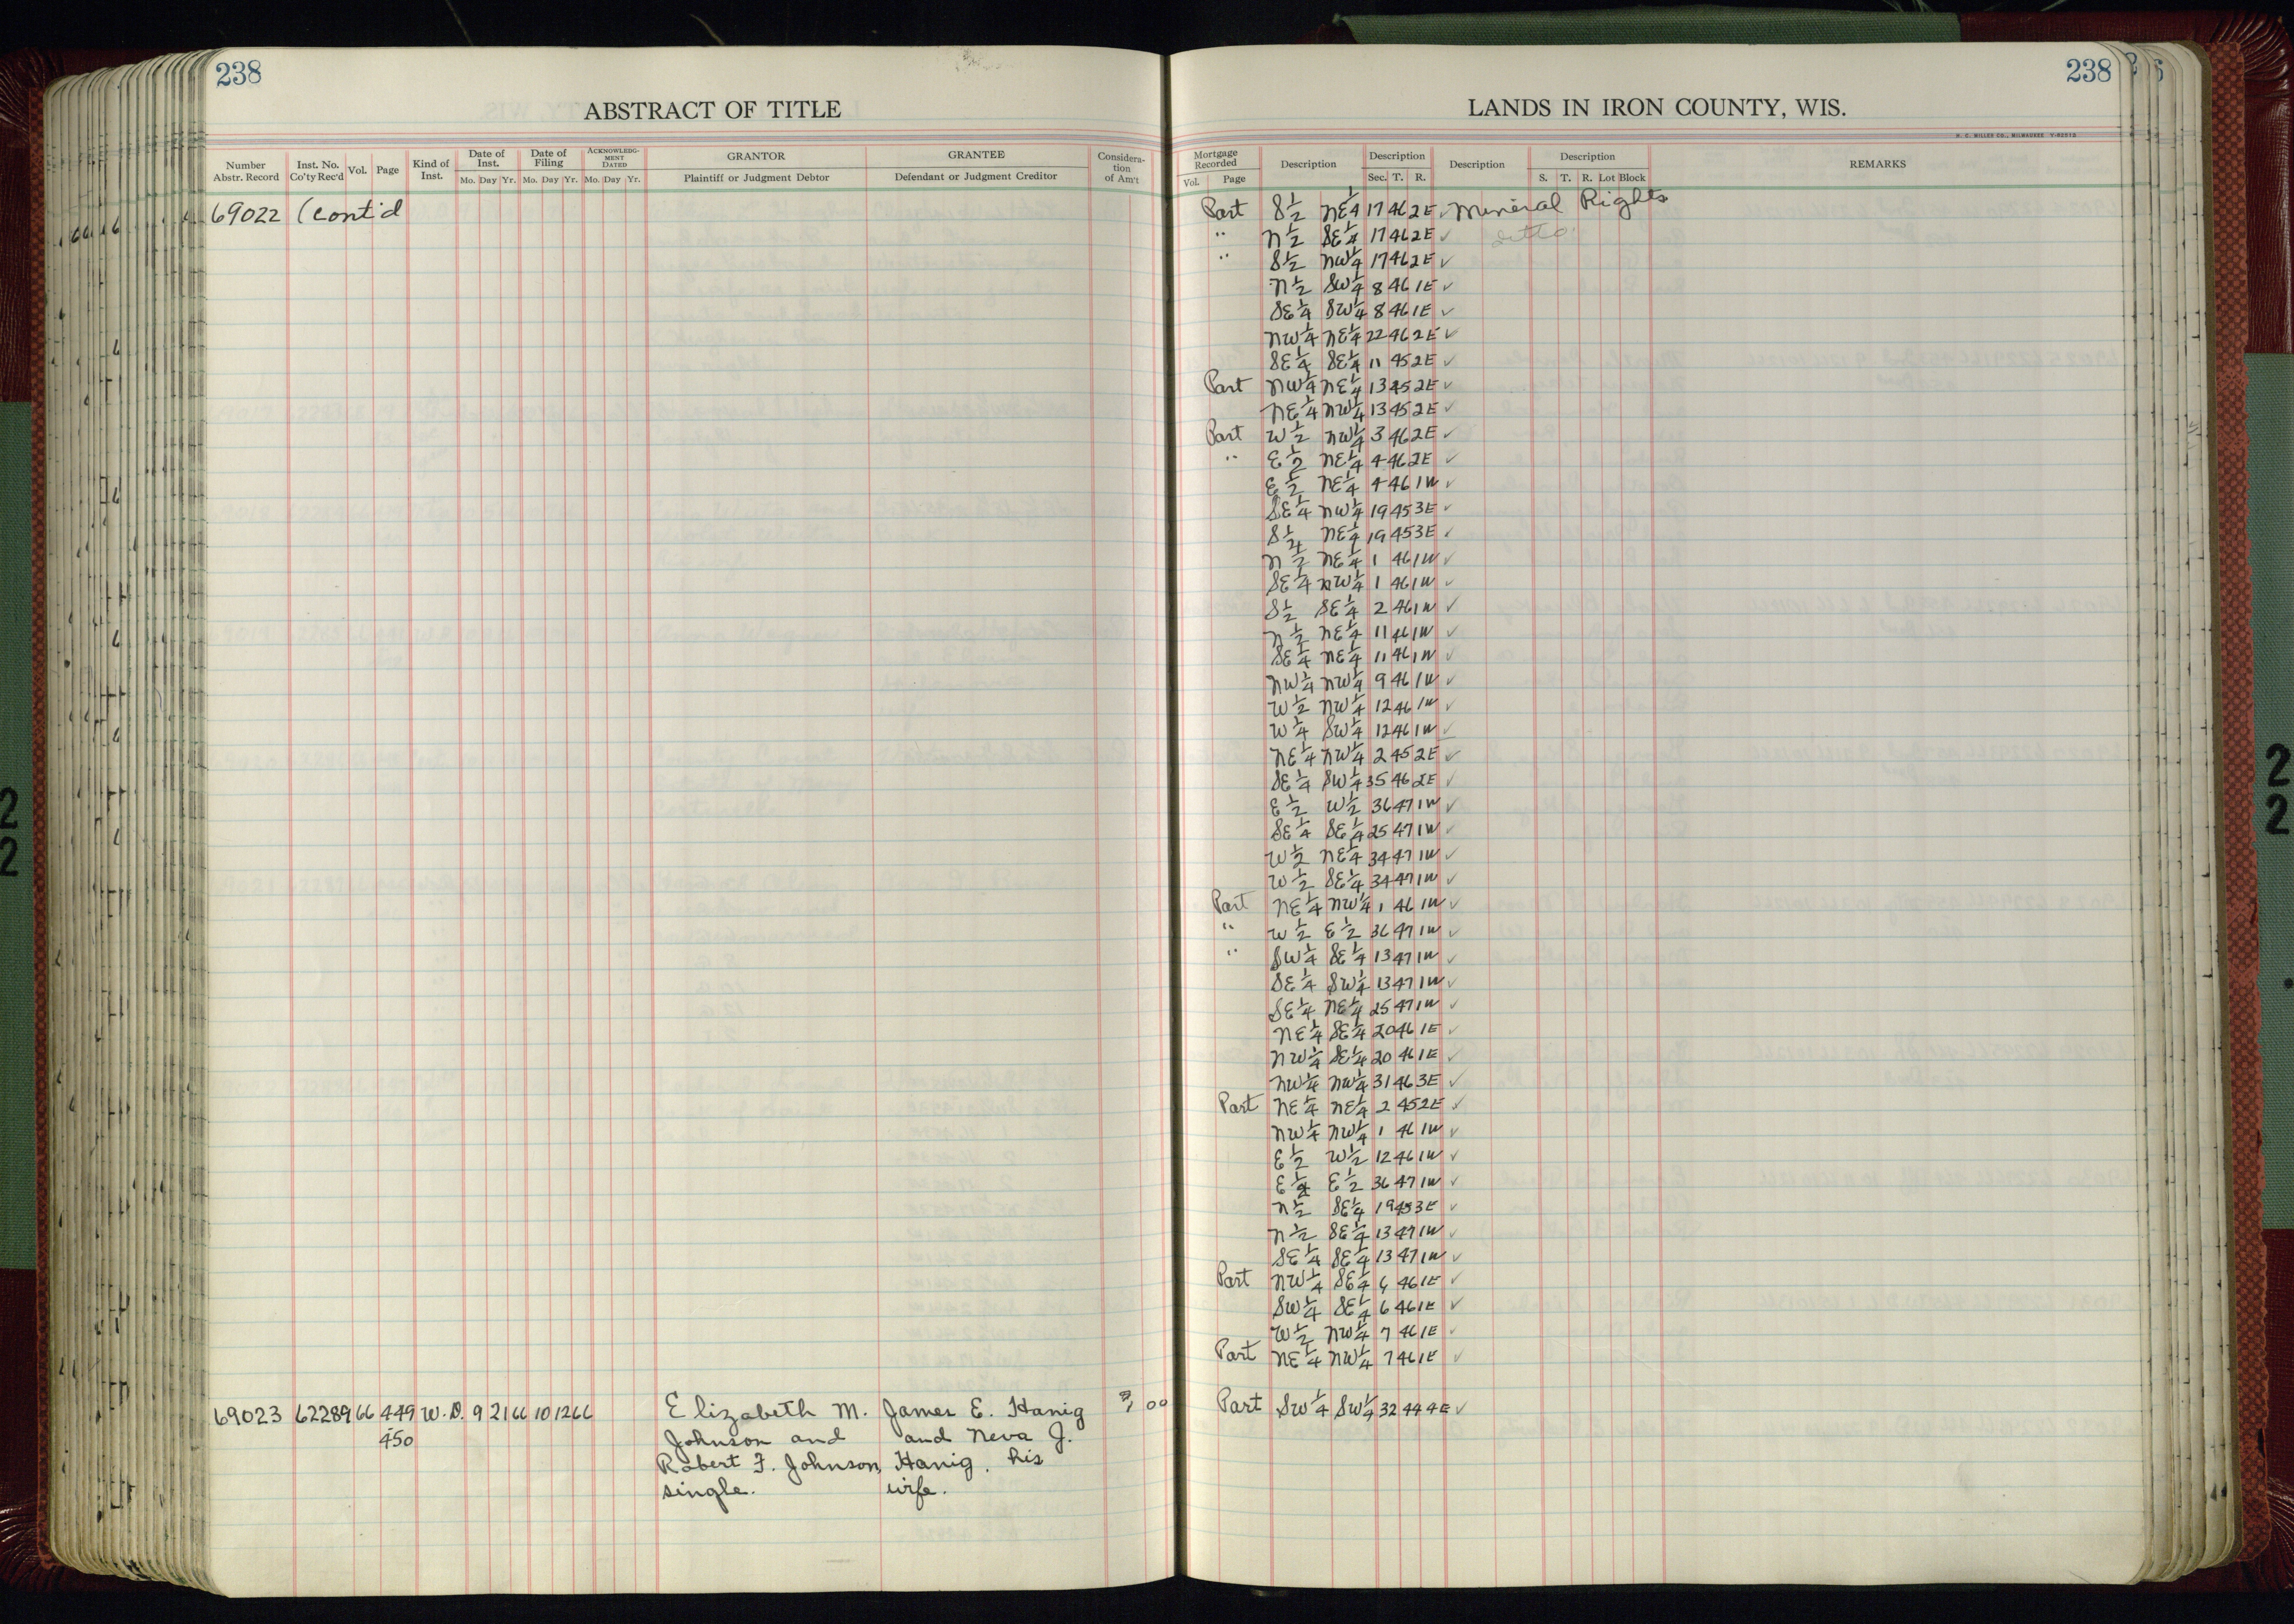 238
ABSTRACT OF TITLE
Number Abstr. Record
Inst. No. Co'ty Rec'd
Vol.
Page
Kind of Inst.
Date of Inst.
Mo. Day Yr.
Date of Filing
Mo. Day Yr.
ACKNOWLEDG-MENT DATED
Mo. Day Yr.
GRANTOR
Plaintiff or Judgment Debtor
GRANTEE
Defendant or Judgment Creditor
Considera-tion of Am't
69022 (Cont'd
69023 62289 66 449 W.D. 9 21 66 10 12 66 Elizabeth M. James E. Hanig 00
450 Johnson and and Neva J.
Robert F. Johnson, Hanig, his
single. wife.
238
LANDS IN IRON COUNTY, WIS.
H. C. MILLER CO., MILWAUKEE
Mortgage Recorded
Vol. Page
Description
Description
Sec. T. R.
Description
Description
S. T. R. Lot Block
REMARKS
Part S½ NE¼ 17 46 2E ✓ Mineral Rights
" N½ SE¼ 17 46 2E ✓ ditto
" S½ NW¼ 17 46 2E ✓
N½ SW¼ 8 46 1E ✓
SE¼ SW¼ 8 46 1E ✓
NW¼ NE¼ 22 46 2E ✓
SE¼ SE¼ 11 45 2E ✓
Part NW¼ NE¼ 13 45 2E ✓
NE¼ NW¼ 13 45 2E ✓
Part W½ NW¼ 3 46 2E ✓
" E½ NE¼ 4 46 2E ✓
E½ NE¼ 4 46 1W ✓
SE¼ NW¼ 19 45 3E ✓
S½ NE¼ 19 45 3E ✓
N½ NE¼ 1 46 1W ✓
SE¼ NW¼ 1 46 1W ✓
S½ SE¼ 2 46 1W ✓
N½ NE¼ 11 46 1W ✓
SE¼ NE¼ 11 46 1W ✓
NW¼ NW¼ 9 46 1W ✓
W½ NW¼ 12 46 1W ✓
W¼ SW¼ 12 46 1W ✓
NE¼ NW¼ 2 45 2E ✓
SE¼ SW¼ 35 46 2E ✓
E½ W½ 36 47 1W ✓
SE¼ SE¼ 25 47 1W ✓
W½ NE¼ 34 47 1W ✓
W½ SE¼ 34 47 1W ✓
Part NE¼ NW¼ 1 46 1W ✓
" W½ E½ 36 47 1W ✓
" SW¼ SE¼ 13 47 1W ✓
SE¼ SW¼ 13 47 1W ✓
SE¼ NE¼ 25 47 1W ✓
NE¼ SE¼ 20 46 1E ✓
NW¼ SE¼ 20 46 1E ✓
NW¼ NW¼ 31 46 3E ✓
Part NE¼ NE¼ 2 45 2E ✓
NW¼ NW¼ 1 46 1W ✓
E½ W½ 12 46 1W ✓
E½ E½ 36 47 1W ✓
N½ SE¼ 19 45 3E ✓
N½ SE¼ 13 47 1W ✓
SE¼ SE¼ 13 47 1W ✓
Part NW¼ SE¼ 6 46 1E ✓
SW¼ SE¼ 6 46 1E ✓
W½ NW¼ 7 46 1E ✓
Part NE¼ NW¼ 7 46 1E ✓
Part SW¼ SW¼ 32 44 4E ✓
22
22